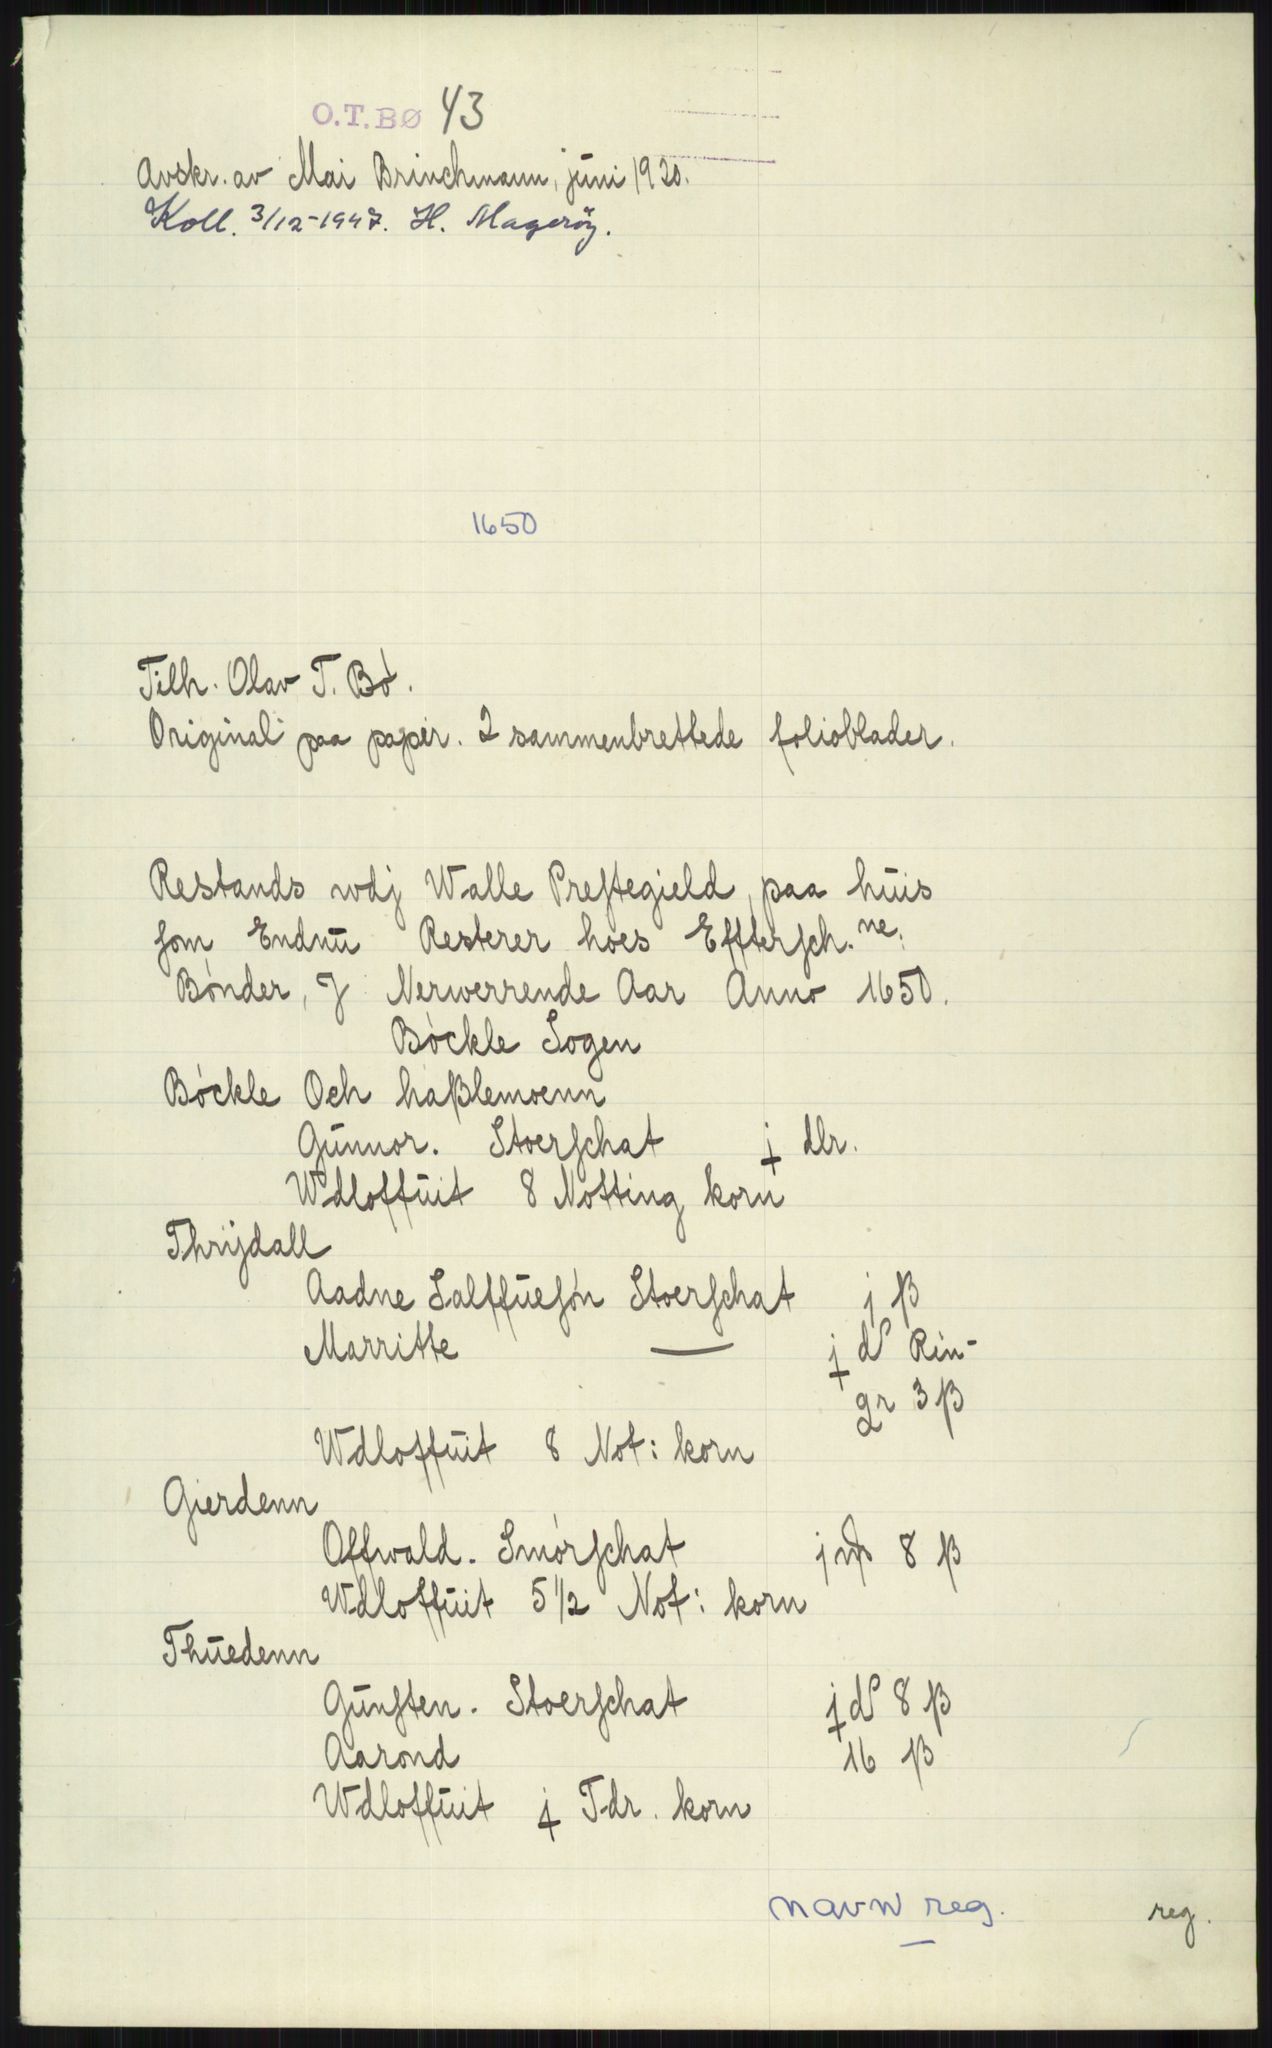 O.T.BØ 43
Avskr. av Mai Brinchmann, juni 1920.
Koll. 3/12-1947. H. Magerøy.
1650
Tilh. Olav T. Bø.
Original paa papir. 2 sammenbrettede folioblader.
Restands wdj Walle Prestegield, paa huis
som Endnu Resterer hoes Efftersch.ne:
Bønder, J Nerwerrende Aar Anno 1650.
Bøckle Sogen
Bøckle Och haßlemoenn
Gunnor. Stoerschat j dlr.
Wdloffuit 8 Notting korn
Thrijdall
Aadne Salffuesøn Stoerschat j ß
Marritte — j d Rin-
gr 3 ß
Wdloffuit 8 Not: korn
Gierdenn
Offwald. Smørschat j 8 ß
Wdloffuit 5 1/2 Not: korn
Thuedenn
Gunsten. Stoerschat j d 8 ß
Aarond 16 ß
Wdloffuit j Tdr. korn
navn reg. reg.